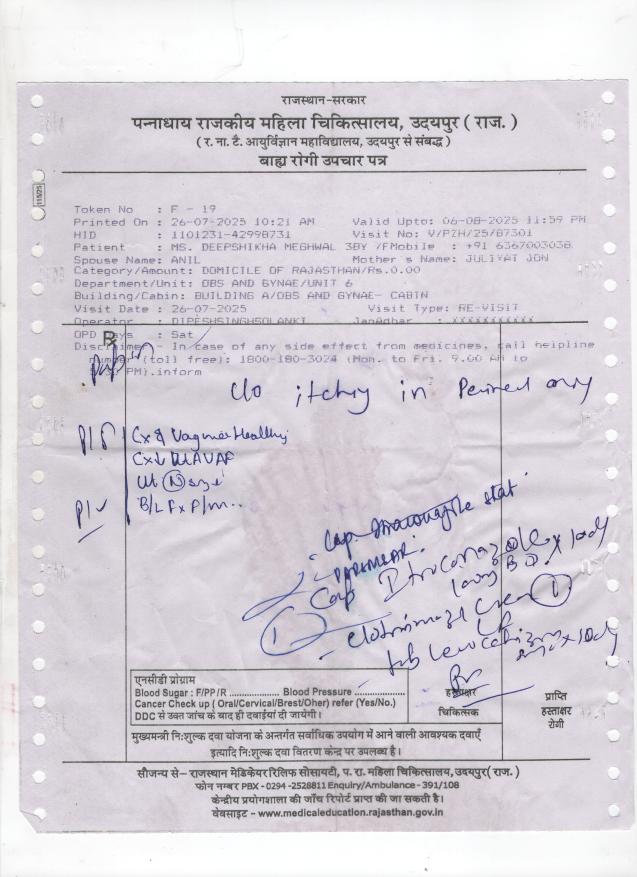 राजस्थान-सरकार
पन्नाधाय राजकीय महिला चिकित्सालय, उदयपुर ( राज. )
( र. ना. टै. आयुर्विज्ञान महाविद्यालय, उदयपुर से संबद्ध )
बाह्य रोगी उपचार पत्र
Token No : F - 19
Printed On : 26-07-2025 10:21 AM Valid Upto: 06-08-2025 11:59 PM
HID : 1101231-42998731 Visit No: V/PZH/25/87301
Patient : MS. DEEPSHIKHA MEGHWAL 38Y /FMobile : +91 6367003038
Spouse Name: ANIL Mother's Name: JULIYAT JON
Category/Amount: DOMICILE OF RAJASTHAN/Rs.0.00
Department/Unit: OBS AND GYNAE/UNIT 6
Building/Cabin: BUILDING A/OBS AND GYNAE- CABIN
Visit Date : 26-07-2025 Visit Type: RE-VISIT
Operator : DIPESHSINGHSOLANKI JanAdhar : XXXXXXXXXX
OPD Days : Sat
Rx
Disclaimer - In case of any side effect from medicines, call helpline
number (toll free): 1800-180-3024 (Mon. to Fri. 9.00 AM to
PM).inform
c/o itchy in
P/S Cx & Vagina Healthy
P/V
B/L Fx
Cap stat
Cap Itraconazole x 10dy
BD
Clotrimazole Cream 1
LA
tab Levocetirizine x 10dy
एनसीडी प्रोग्राम
Blood Sugar : F/PP /R .................... Blood Pressure ....................
Cancer Check up ( Oral/Cervical/Brest/Oher) refer (Yes/No.)
DDC से उक्त जांच के बाद ही दवाईयां दी जायेगी।
हस्ताक्षर
चिकित्सक
प्राप्ति
हस्ताक्षर
रोगी
मुख्यमन्त्री नि:शुल्क दवा योजना के अन्तर्गत सर्वाधिक उपयोग में आने वाली आवश्यक दवाएँ
इत्यादि नि:शुल्क दवा वितरण केन्द्र पर उपलब्ध है।
सौजन्य से– राजस्थान मेडिकेयर रिलिफ सोसायटी, प. रा. महिला चिकित्सालय, उदयपुर( राज. )
फोन नम्बर PBX - 0294 -2528811 Enquiry/Ambulance - 391/108
केन्द्रीय प्रयोगशाला की जाँच रिपोर्ट प्राप्त की जा सकती है।
वेबसाइट – www.medicaleducation.rajasthan.gov.in